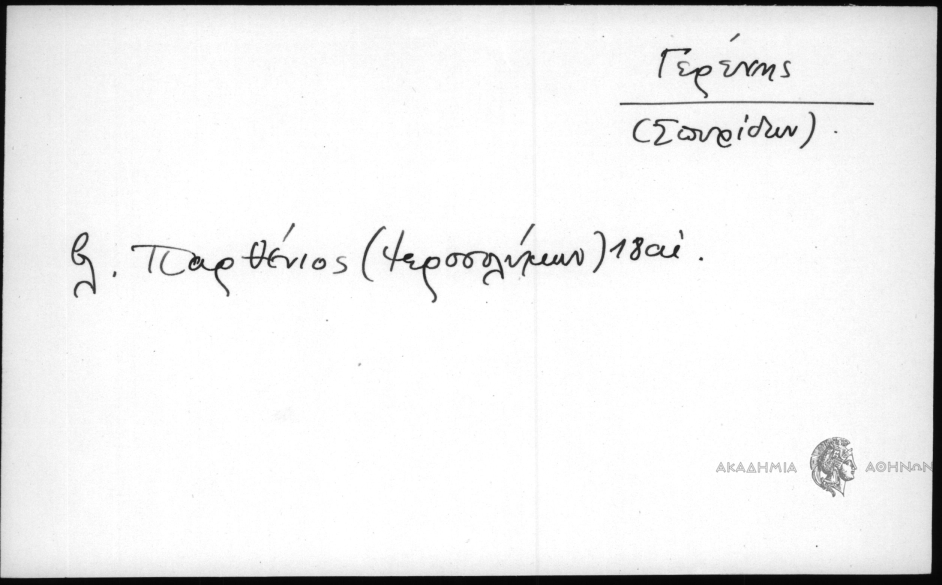 Γερένης
(Σπυρίδων).
βλ. Παρθένιος (Ιεροσολύμων) 18 αἰ.
ΑΚΑΔΗΜΙΑ ΑΘΗΝΩΝ